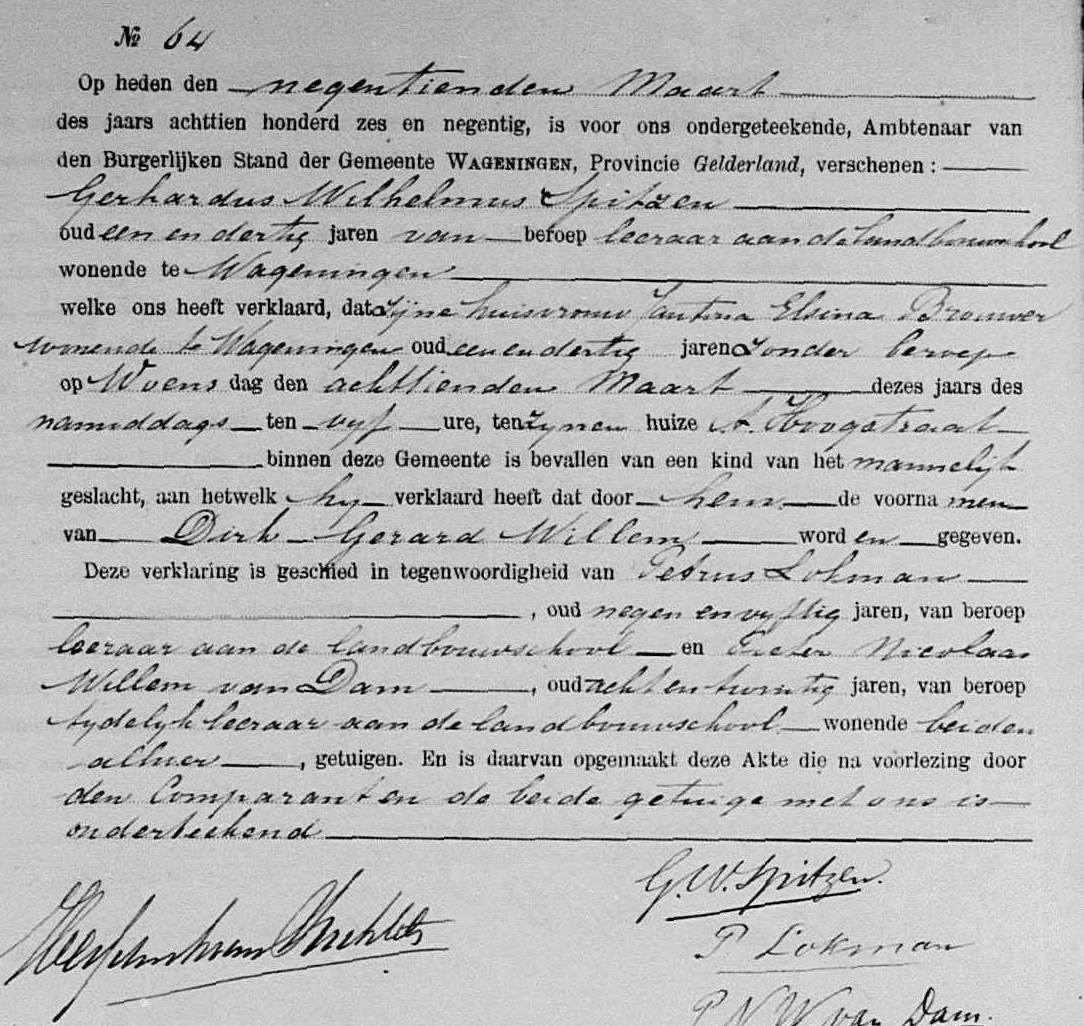 № 64
Op heden den negentienden Maart
des jaars achttien honderd zes en negentig, is voor ons ondergeteekende, Ambtenaar van
den Burgerlijken Stand der Gemeente WAGENINGEN, Provincie Gelderland, verschenen :
Gerhardus Wilhelmus Spitzen
oud een en dertig jaren van beroep leeraar aan de landbouwschool
wonende te Wageningen
welke ons heeft verklaard, dat zijne huisvrouw Jantina Elsina Brouwer
wonende te Wageningen oud een en dertig jaren zonder beroep
op Woens dag den achttienden Maart dezes jaars des
namiddags ten vyf ure, ten zynen huize A. Hoogstraat
binnen deze Gemeente is bevallen van een kind van het mannelijk
geslacht, aan hetwelk hy verklaard heeft dat door hem de voorna men
van Dirk Gerard Willem word en gegeven.
Deze verklaring is geschied in tegenwoordigheid van Petrus Lokman
, oud negen en vyftig jaren, van beroep
leeraar aan de landbouwschool en Pieter Nicolaas
Willem van Dam , oud acht en twintig jaren, van beroep
tydelyk leeraar aan de landbouwschool wonende beiden
alhier , getuigen. En is daarvan opgemaakt deze Akte die na voorlezing door
den Comparant en de beide getuige met ons is
onderteekend
G. W. Spitzen.
P Lokman
P N W van Dam.